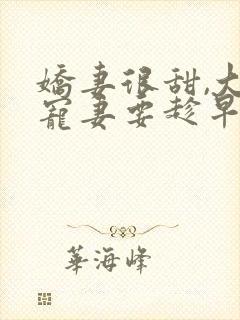 嬌妻很甜,大
寵妻要趁早
華海峰